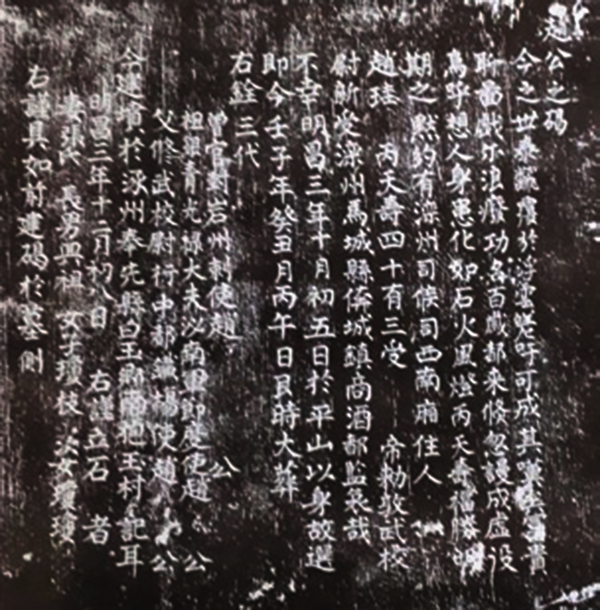 趙公之碣
今之世泰嚴瘦於浮雲嗟吁可成其實矣富貴
聊當戲尔浪癈功名百歲都來倏忽謾成虛設
嗚呼想人身患化如石火風燈丙天壽福勝明
期之默約有滦州司候司西南厢住人
趙珪 丙天壽四十有三受 帝勅敦武校
尉新受滦州馬城縣倴城鎮商酒都監哀哉
不幸明昌三年十月初五日於平山以身故選
即今壬子年癸丑月丙午日艮時大葬
右銓三代
曾官封岩州刺使趙 公
祖舉青光祿大夫汝南軍節度使趙 公
父修武校尉行中都 楊使趙 公
今建墳於涿州奉先縣白玉 村 記耳
明昌三年十二月初八日 右謹立石 者
妻張氏 長男興祖 女子瓊枝 次女瓊瓊
右謹具如前建碣於墓側